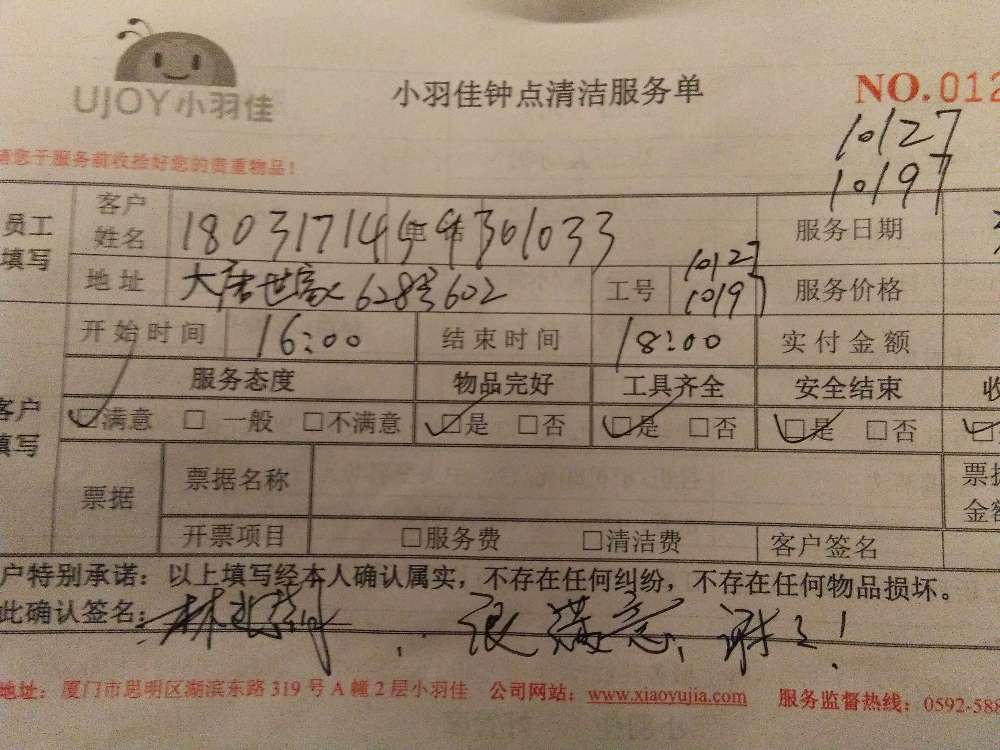 UJOY小羽佳
小羽佳钟点清洁服务单
NO.012
10127
10197
请您于服务前收拾好您的贵重物品!
员工填写
客户姓名 18031714 电话 361033
地址 大唐世家628号602 工号 10127 10197
服务日期
服务价格
开始时间 16:00 结束时间 18:00 实付金额
客户填写
服务态度 物品完好 工具齐全 安全结束 收
□满意 □一般 □不满意 □是 □否 □是 □否 □是 □否 □
票据 票据名称 票据金额
开票项目 □服务费 □清洁费 客户签名
户特别承诺:以上填写经本人确认属实,不存在任何纠纷,不存在任何物品损坏。
此确认签名: 林 很满意,谢了!
地址:厦门市思明区湖滨东路319号A幢2层小羽佳 公司网站:www.xiaoyujia.com 服务监督热线:0592-588